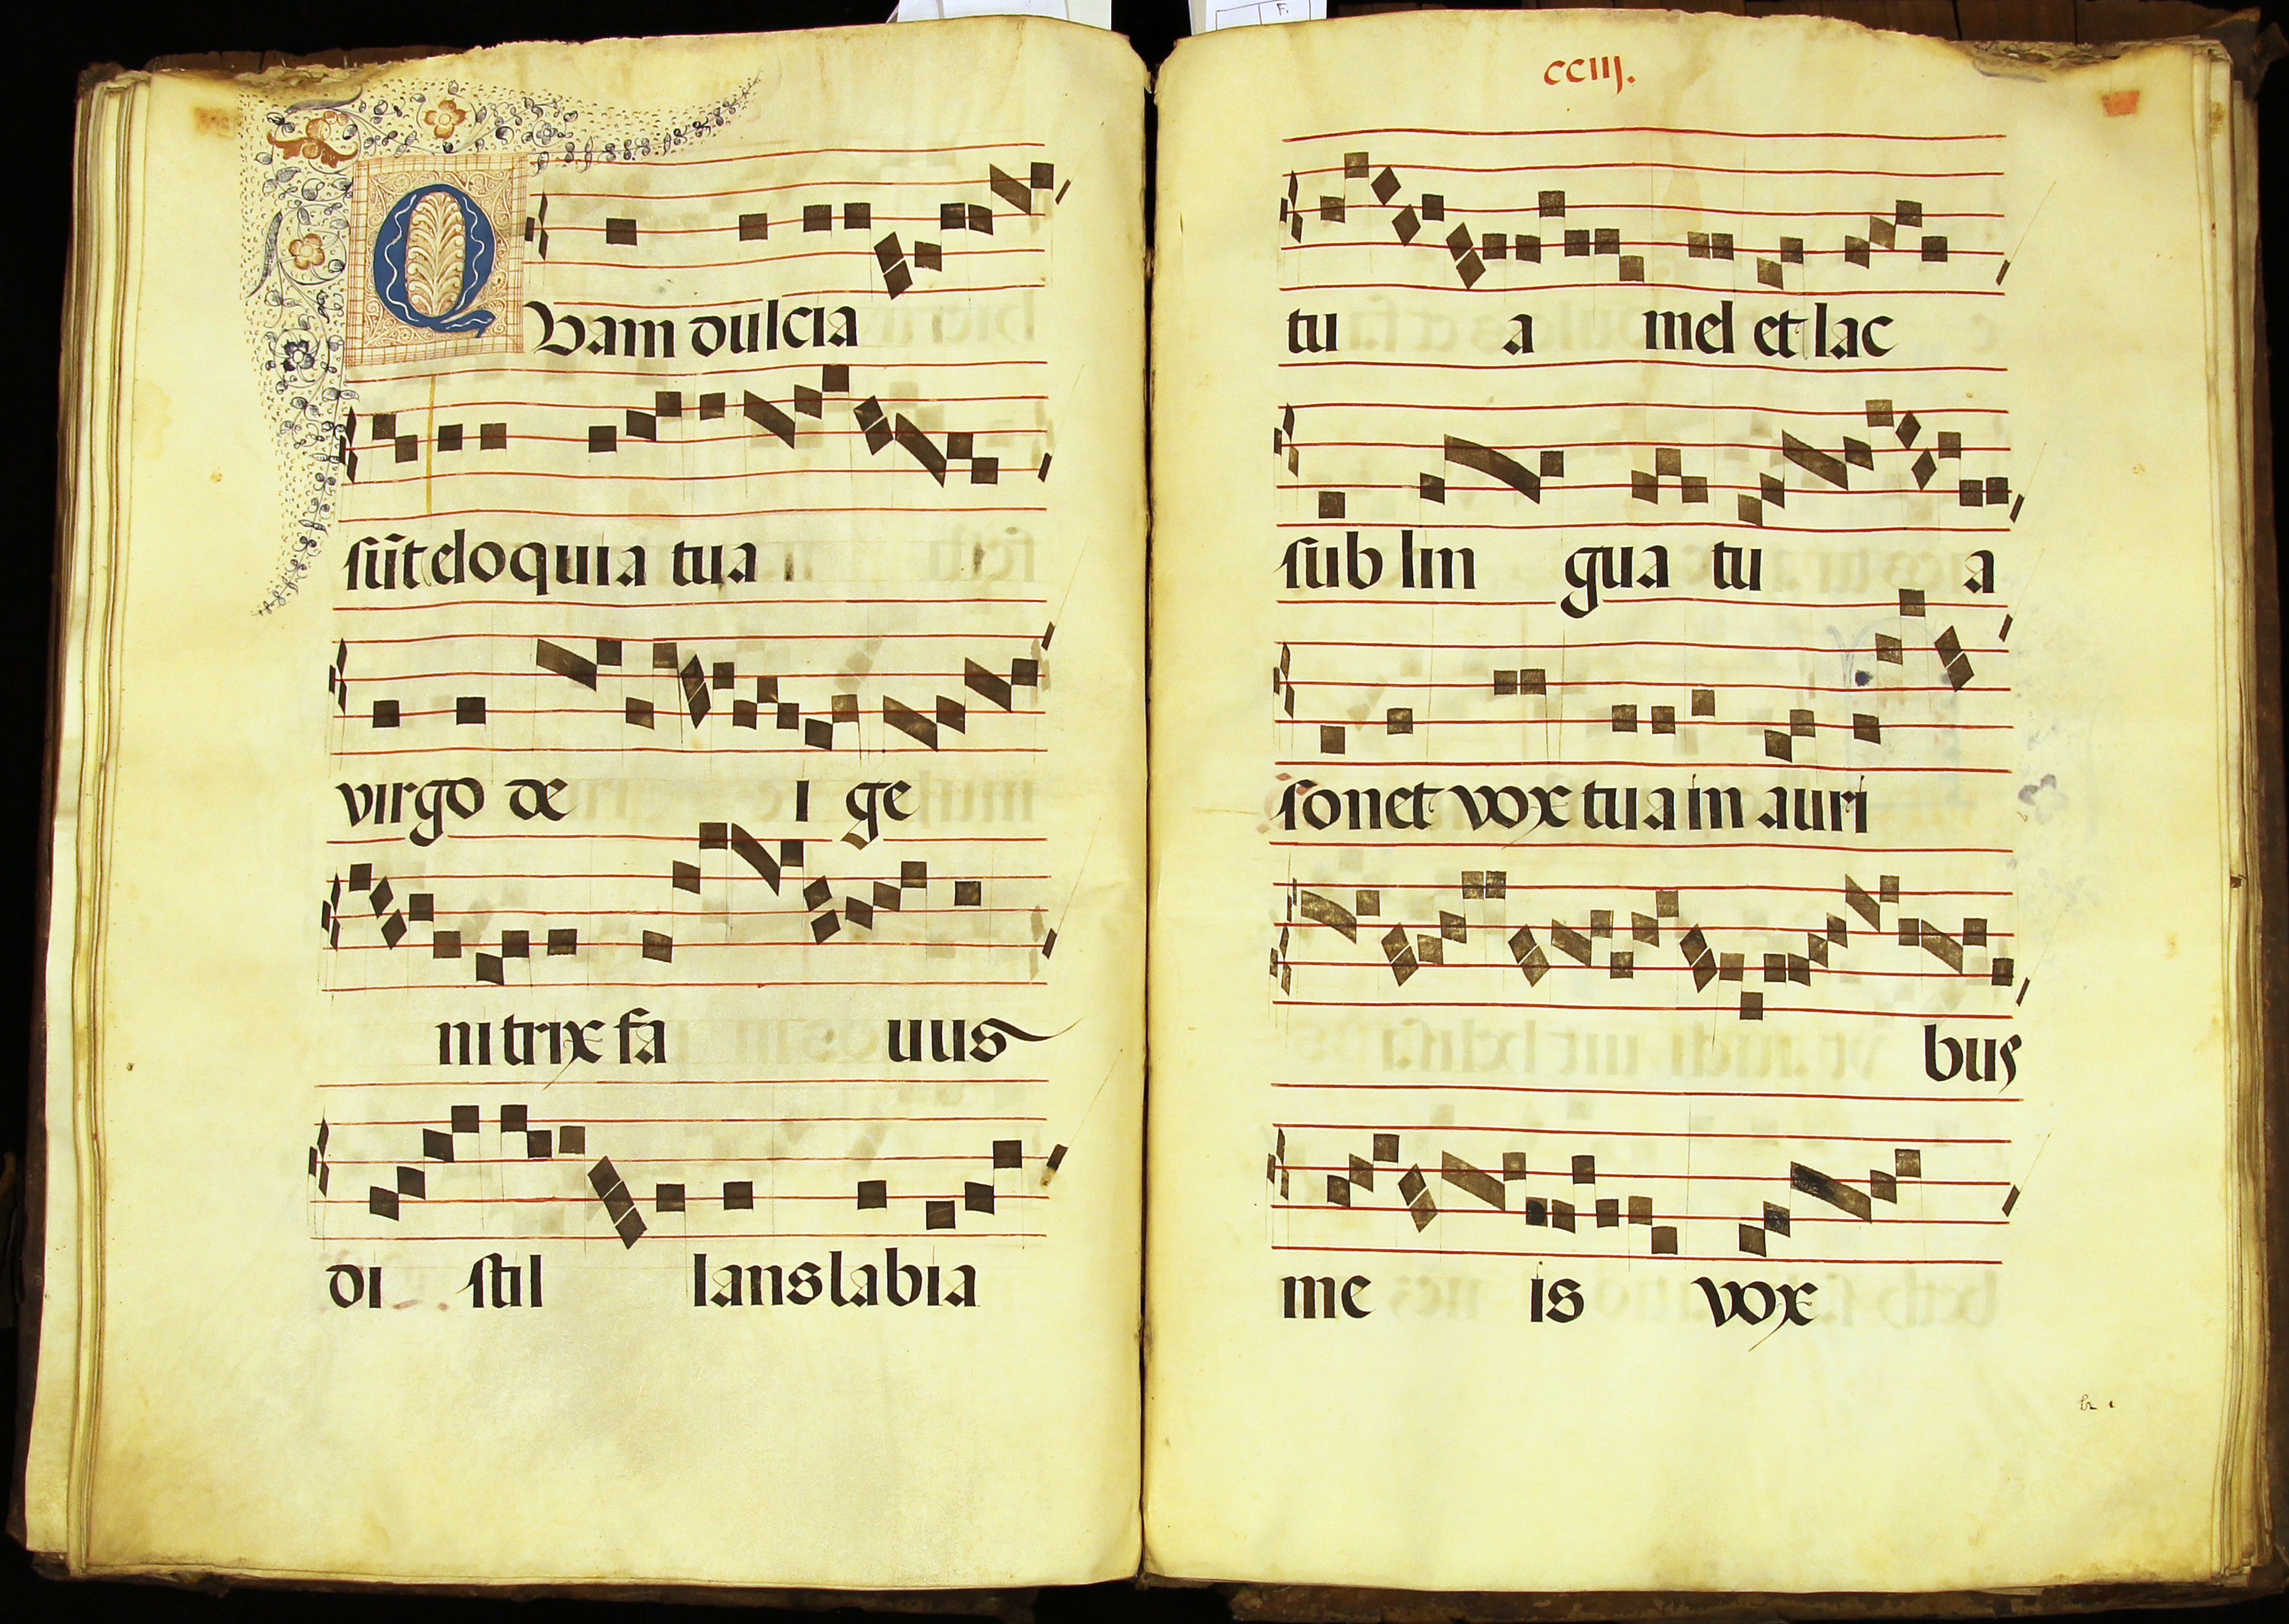 QUam dulcia
sūt eloquia tua
virgo de i ge
nitrix fa uus
di stil lans labia
CCIIJ.
tu a mel et lac
sub lin gua tu a
sonet vox tua in auri
bus
me is vox
F.